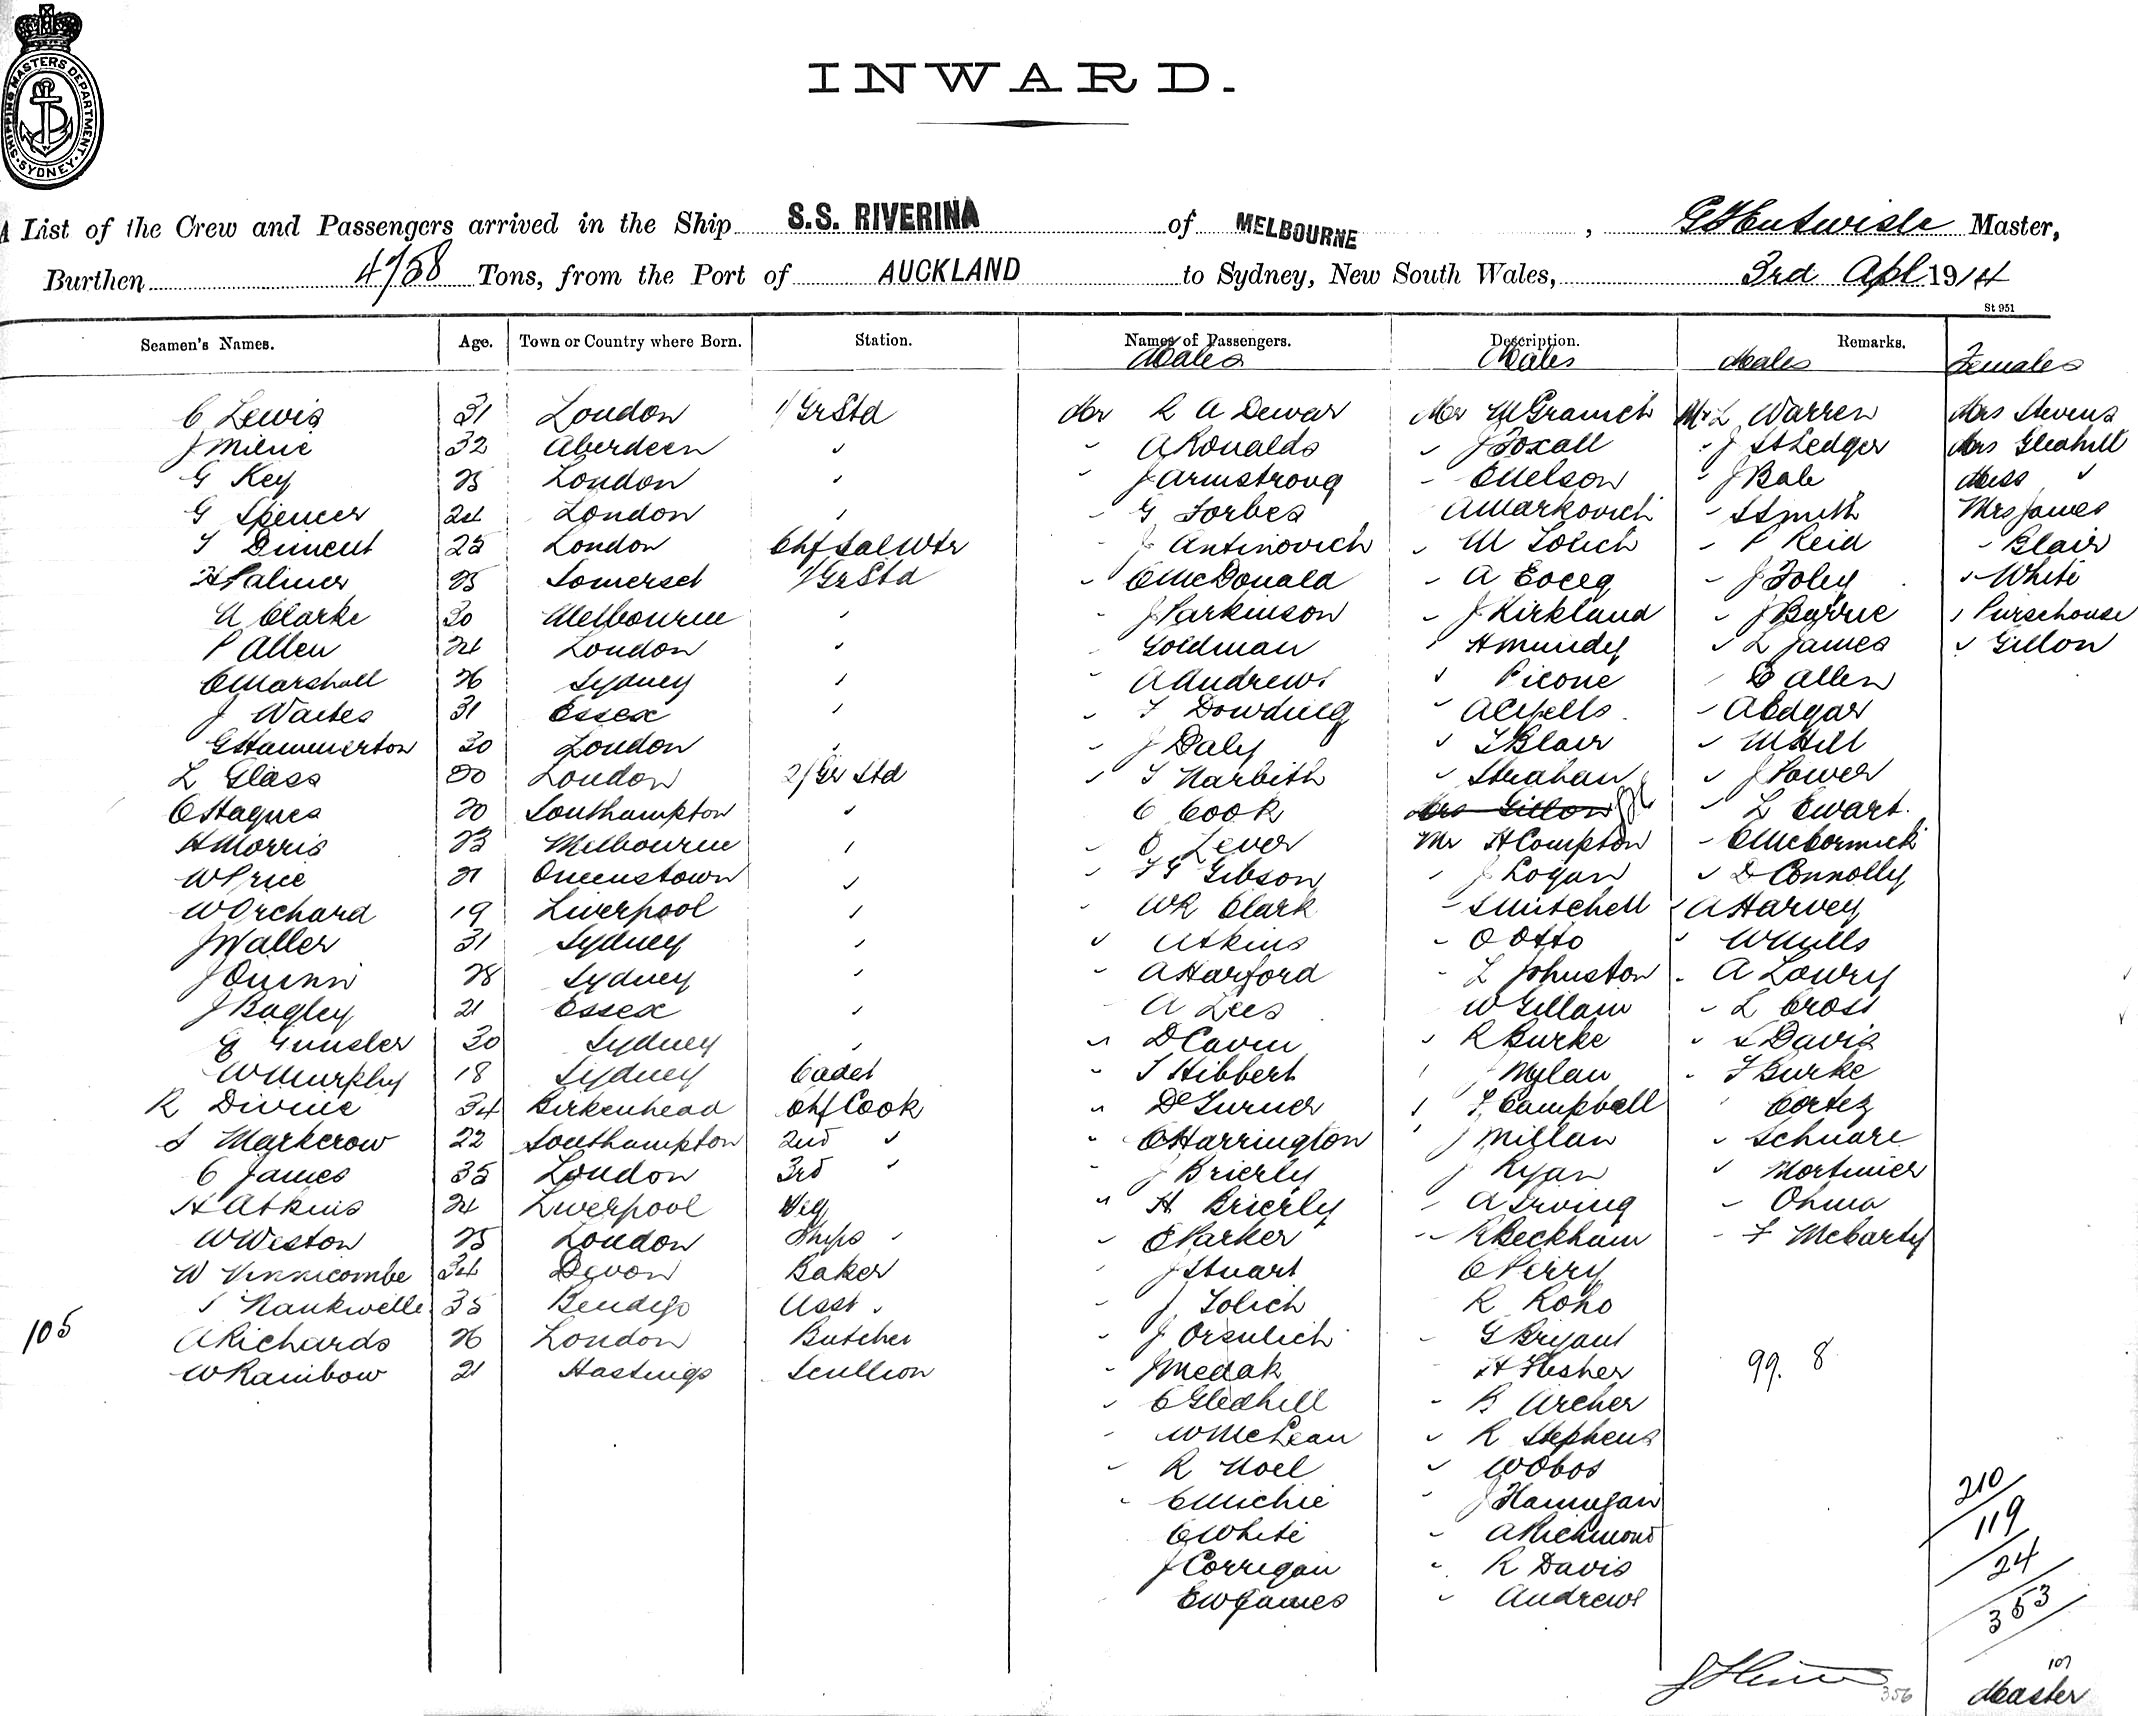 SHIPPING MASTERS DEPARTMENT · SYDNEY ·
INWARD.
A List of the Crew and Passengers arrived in the Ship S.S. RIVERINA of MELBOURNE, Master,
Burthen 4758 Tons, from the Port of AUCKLAND to Sydney, New South Wales, 3rd Apl 1914
St 951
Seamen's Names. Age. Town or Country where Born. Station. Names of Passengers. Description. Remarks.
Males Males Males Females
C Lewis 31 London 1/Gr Std Mr R A Dewar Mr M Granich Mr L Warren Mrs Stevens
J Milne 32 Aberdeen " " A Ronalds " J Foxall " J St Ledger Mrs Gledhill
G Key 25 London " " J Armstrong " E Nelson " J Bale Miss "
G Spencer 24 London " " G Forbes A Markovich " S Smith Mrs James
T Diment 25 London Chf Sal Wtr " J Antinovich " M Solich " P Reid " Blair
H Palmer 25 Somerset 1/Gr Std " C McDonald " A " J Foley " White
A Clarke 30 Melbourne " " J Parkinson " J Kirkland " J Barrie " Pursehouse
P Allen 24 London " " Goldman " H Mundey " L James " Gillon
C Marshall 26 Sydney " " A Andrews " Picone " C Allen
J Waites 31 Essex " " T Dowding " A " A Edgar
G Hammerton 30 London " " J Daly " T Blair " M Hill
L Glass 20 London 2/Gr Std " T Narbith " Strahan " J Power
C Hagues 20 Southampton " C Cook Mrs Gillon " L Ewart.
H Morris 23 Melbourne " " O Lever Mr H Compton " C McCormick
W Price 21 Queenstown " " T G Gibson " J Logan " D Connolly
W Orchard 19 Liverpool " " W R Clark " S Mitchell " A Harvey
J Waller 31 Sydney " " Atkins " O Otto " W Mills
J Quinn 28 Sydney " " A Harford " L Johnston " A Lowry
J Bagley 21 Essex " A Lees W Gillam " L Cross
E Gunsler 30 Sydney " " D Caven " R Burke " S Davis
W Murphy 18 Sydney Cadet " T Hibbert " J Mylan " T Burke
R Divine 34 Birkenhead Chf Cook " Dr Turner " T Campbell " Cortez
S Markcrow 22 Southampton 2nd " " C Harrington " J Millan " Schuare
C James 35 London 3rd " " J Brierly J Ryan " Mortimer
H Atkins 24 Liverpool Veg " H Brierly " A Irving " Ohma
W Weston 25 London Ships " " E Parker " R Beckham " F McCarty
W Vinnicombe 34 Devon Baker " J Stuart C Perry
S Nankivelle 35 Bendigo Asst " " J Solich R Roho
105 A Richards 26 London Butcher " J Orsulich " G Bryant
W Rainbow 21 Hastings Scullion " J Medak H Flesher 99. 8
" C Gledhill " B Archer
" W McLean " R Stephens
" R Noel " W Obos
" C Michie " J Hannigan
C White " A Richmond
J Corrigan " R Davis
E W James " Andrews
210
119
24
353
107
356
Master